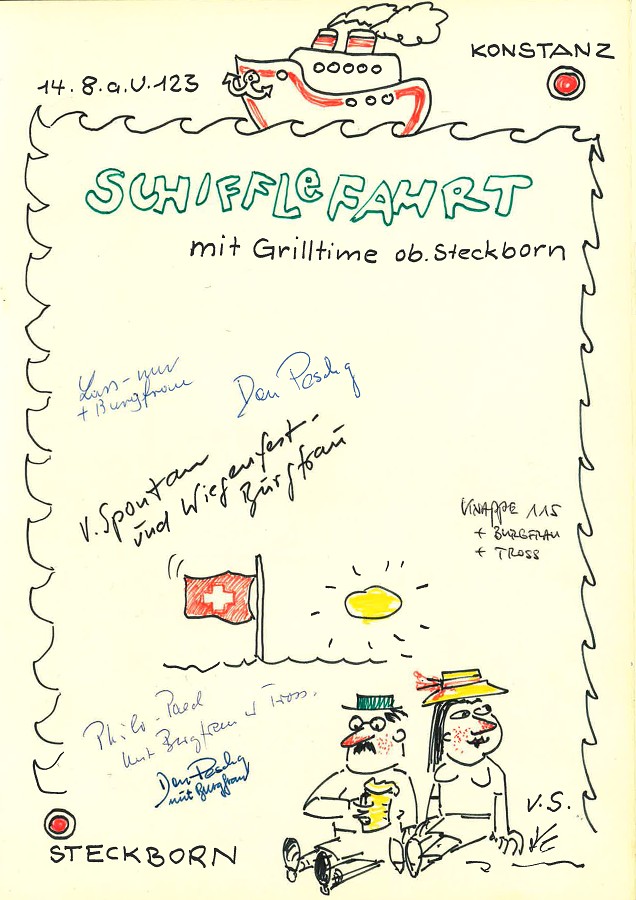 KONSTANZ
14. 8. a. U. 123
SCHIFFLeFAHRT
mit Grilltime ob. Steckborn
Lass-nur
+ Burgfrau
Don Poschg
v. Spontan
und Wiegenfest-
Burgfrau
KNAPPE 115
+ BURGFRAU
+ TROSS
Philo-Paed
mit Burgfrau u Tross.
Don Poschg
mit Burgfrau
v.S.
STECKBORN